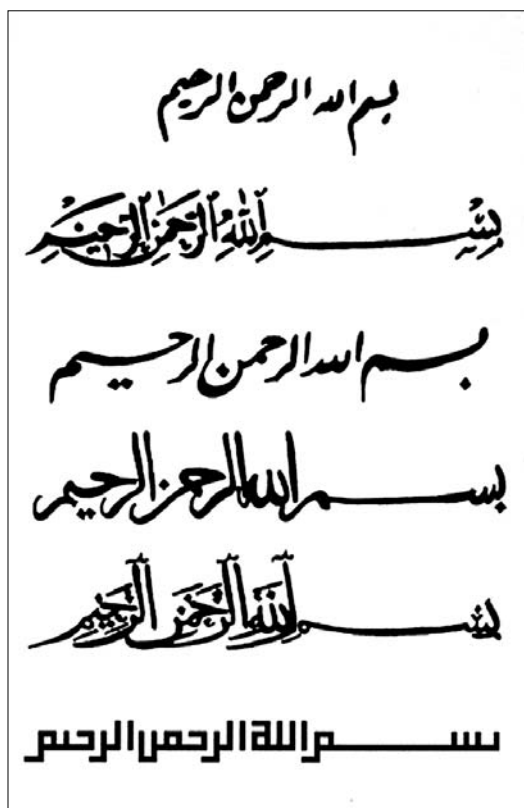 بسم الله الرحمن الرحيم
بِسْمِ اللّٰهِ الرَّحْمٰنِ الرَّحِيْمِ
بسم الله الرحمن الرحيم
بسم الله الرحمن الرحيم
بِسْمِ اللّٰهِ الرَّحْمٰنِ الرَّحِيْمِ
بسم الله الرحمن الرحيم